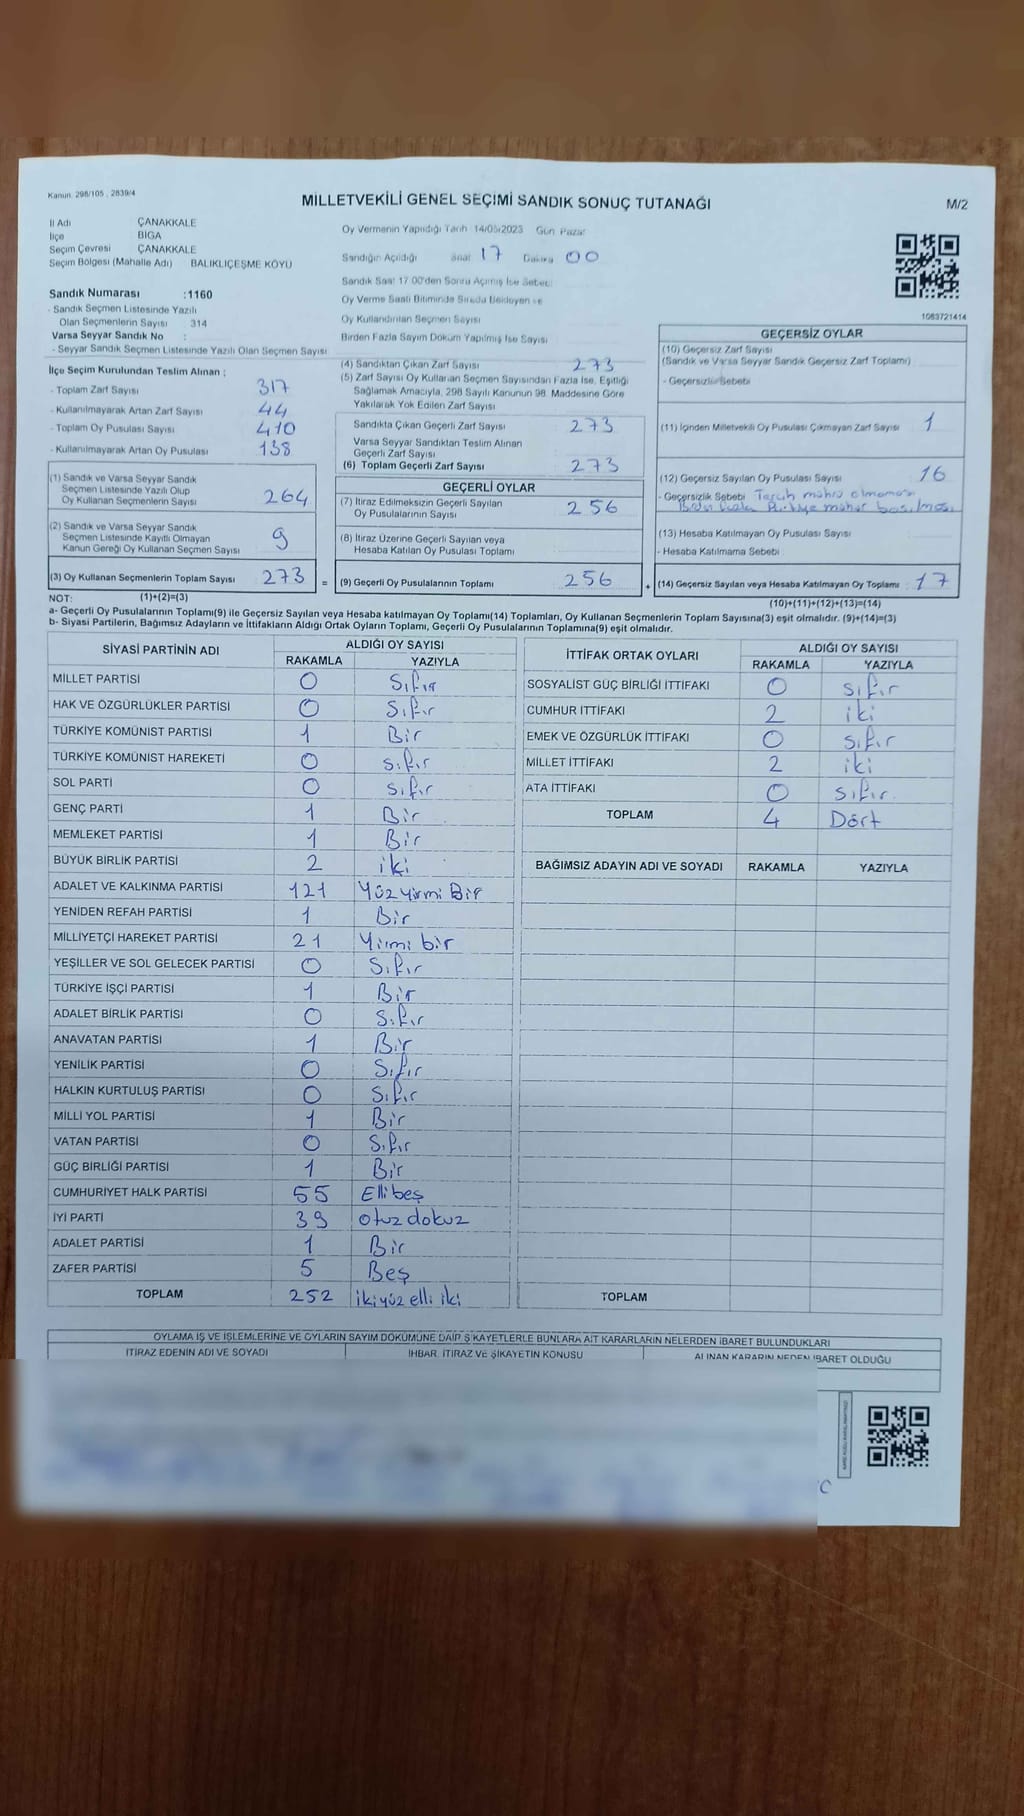 Kanun. 298/105 , 2839/4
MİLLETVEKİLİ GENEL SEÇİMİ SANDIK SONUÇ TUTANAĞI
M/2
İl Adı ÇANAKKALE
İlçe BİGA
Seçim Çevresi ÇANAKKALE
Seçim Bölgesi (Mahalle Adı) BALIKLIÇEŞME KÖYÜ
Sandık Numarası :1160
- Sandık Seçmen Listesinde Yazılı
Olan Seçmenlerin Sayısı 314
Varsa Seyyar Sandık No :
- Seyyar Sandık Seçmen Listesinde Yazılı Olan Seçmen Sayısı
İlçe Seçim Kurulundan Teslim Alınan :
- Toplam Zarf Sayısı 317
- Kullanılmayarak Artan Zarf Sayısı 44
- Toplam Oy Pusulası Sayısı 410
- Kullanılmayarak Artan Oy Pusulası 138
(1) Sandık ve Varsa Seyyar Sandık
Seçmen Listesinde Yazılı Olup
Oy Kullanan Seçmenlerin Sayısı 264
(2) Sandık ve Varsa Seyyar Sandık
Seçmen Listesinde Kayıtlı Olmayan
Kanun Gereği Oy Kullanan Seçmen Sayısı 9
(3) Oy Kullanan Seçmenlerin Toplam Sayısı 273 =
Oy Vermenin Yapıldığı Tarih 14/05/2023 Gün Pazar
Sandığın Açıldığı Saat 17 Dakika 00
Sandık Saat 17 00'den Sonra Açılmış İse Sebebi
Oy Verme Saati Bitiminde Sırada Bekleyen ve
Oy Kullandırılan Seçmen Sayısı
Birden Fazla Sayım Döküm Yapılmış İse Sayısı
(4) Sandıktan Çıkan Zarf Sayısı 273
(5) Zarf Sayısı Oy Kullanan Seçmen Sayısından Fazla İse, Eşitliği
Sağlamak Amacıyla, 298 Sayılı Kanunun 98. Maddesine Göre
Yakılarak Yok Edilen Zarf Sayısı
Sandıkta Çıkan Geçerli Zarf Sayısı 273
Varsa Seyyar Sandıktan Teslim Alınan
Geçerli Zarf Sayısı
(6) Toplam Geçerli Zarf Sayısı 273
GEÇERLİ OYLAR
(7) İtiraz Edilmeksizin Geçerli Sayılan
Oy Pusulalarının Sayısı 256
(8) İtiraz Üzerine Geçerli Sayılan veya
Hesaba Katılan Oy Pusulası Toplamı
(9) Geçerli Oy Pusulalarının Toplamı 256 +
1063721414
GEÇERSİZ OYLAR
(10) Geçersiz Zarf Sayısı
(Sandık ve Varsa Seyyar Sandık Geçersiz Zarf Toplamı)
- Geçersizlik Sebebi
(11) İçinden Milletvekili Oy Pusulası Çıkmayan Zarf Sayısı 1
(12) Geçersiz Sayılan Oy Pusulası Sayısı 16
- Geçersizlik Sebebi Tercih mührü olmaması
Birden fazla Partiye mühür basılması
(13) Hesaba Katılmayan Oy Pusulası Sayısı
- Hesaba Katılmama Sebebi
(14) Geçersiz Sayılan veya Hesaba Katılmayan Oy Toplamı 17
NOT: (1)+(2)=(3)
(10)+(11)+(12)+(13)=(14)
a- Geçerli Oy Pusulalarının Toplamı(9) ile Geçersiz Sayılan veya Hesaba katılmayan Oy Toplamı(14) Toplamları, Oy Kullanan Seçmenlerin Toplam Sayısına(3) eşit olmalıdır. (9)+(14)=(3)
b- Siyasi Partilerin, Bağımsız Adayların ve İttifakların Aldığı Ortak Oyların Toplamı, Geçerli Oy Pusulalarının Toplamına(9) eşit olmalıdır.
SİYASİ PARTİNİN ADI ALDIĞI OY SAYISI
RAKAMLA YAZIYLA
MİLLET PARTİSİ 0 Sıfır
HAK VE ÖZGÜRLÜKLER PARTİSİ 0 Sıfır
TÜRKİYE KOMÜNİST PARTİSİ 1 Bir
TÜRKİYE KOMÜNİST HAREKETİ 0 Sıfır
SOL PARTİ 0 Sıfır
GENÇ PARTİ 1 Bir
MEMLEKET PARTİSİ 1 Bir
BÜYÜK BİRLİK PARTİSİ 2 iki
ADALET VE KALKINMA PARTİSİ 121 Yüz yirmi Bir
YENİDEN REFAH PARTİSİ 1 Bir
MİLLİYETÇİ HAREKET PARTİSİ 21 Yirmi bir
YEŞİLLER VE SOL GELECEK PARTİSİ 0 Sıfır
TÜRKİYE İŞÇİ PARTİSİ 1 Bir
ADALET BİRLİK PARTİSİ 0 Sıfır
ANAVATAN PARTİSİ 1 Bir
YENİLİK PARTİSİ 0 Sıfır
HALKIN KURTULUŞ PARTİSİ 0 Sıfır
MİLLİ YOL PARTİSİ 1 Bir
VATAN PARTİSİ 0 Sıfır
GÜÇ BİRLİĞİ PARTİSİ 1 Bir
CUMHURİYET HALK PARTİSİ 55 Elli beş
İYİ PARTİ 39 Otuz dokuz
ADALET PARTİSİ 1 Bir
ZAFER PARTİSİ 5 Beş
TOPLAM 252 ikiyüz elli iki
İTTİFAK ORTAK OYLARI ALDIĞI OY SAYISI
RAKAMLA YAZIYLA
SOSYALİST GÜÇ BİRLİĞİ İTTİFAKI 0 Sıfır
CUMHUR İTTİFAKI 2 iki
EMEK VE ÖZGÜRLÜK İTTİFAKI 0 Sıfır
MİLLET İTTİFAKI 2 iki
ATA İTTİFAKI 0 Sıfır
TOPLAM 4 Dört
BAĞIMSIZ ADAYIN ADI VE SOYADI RAKAMLA YAZIYLA
TOPLAM
OYLAMA İŞ VE İŞLEMLERİNE VE OYLARIN SAYIM DÖKÜMÜNE DAİR ŞİKAYETLERLE BUNLARA AİT KARARLARIN NELERDEN İBARET BULUNDUKLARI
İTİRAZ EDENİN ADI VE SOYADI İHBAR, İTİRAZ VE ŞİKAYETİN KONUSU ALINAN KARARIN NEDEN İBARET OLDUĞU